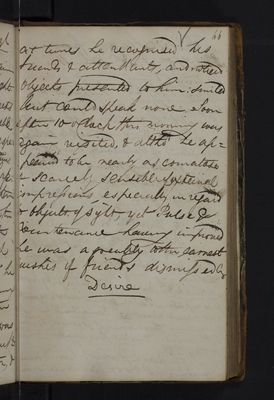 68
at times he recognised his
friends & attendants, and noticed
objects presented to him smiled
but could speak none. Soon
after 10 o'clock this morning was
again visited & altho he ap-
peared to be nearly as comatose
& scarcely sensible of external
impressions especially in regard
to objects of sight, yet Pulse &
Countenance having improved
he was agreeably to the earnest
wishes of friends dismissed by
Desire